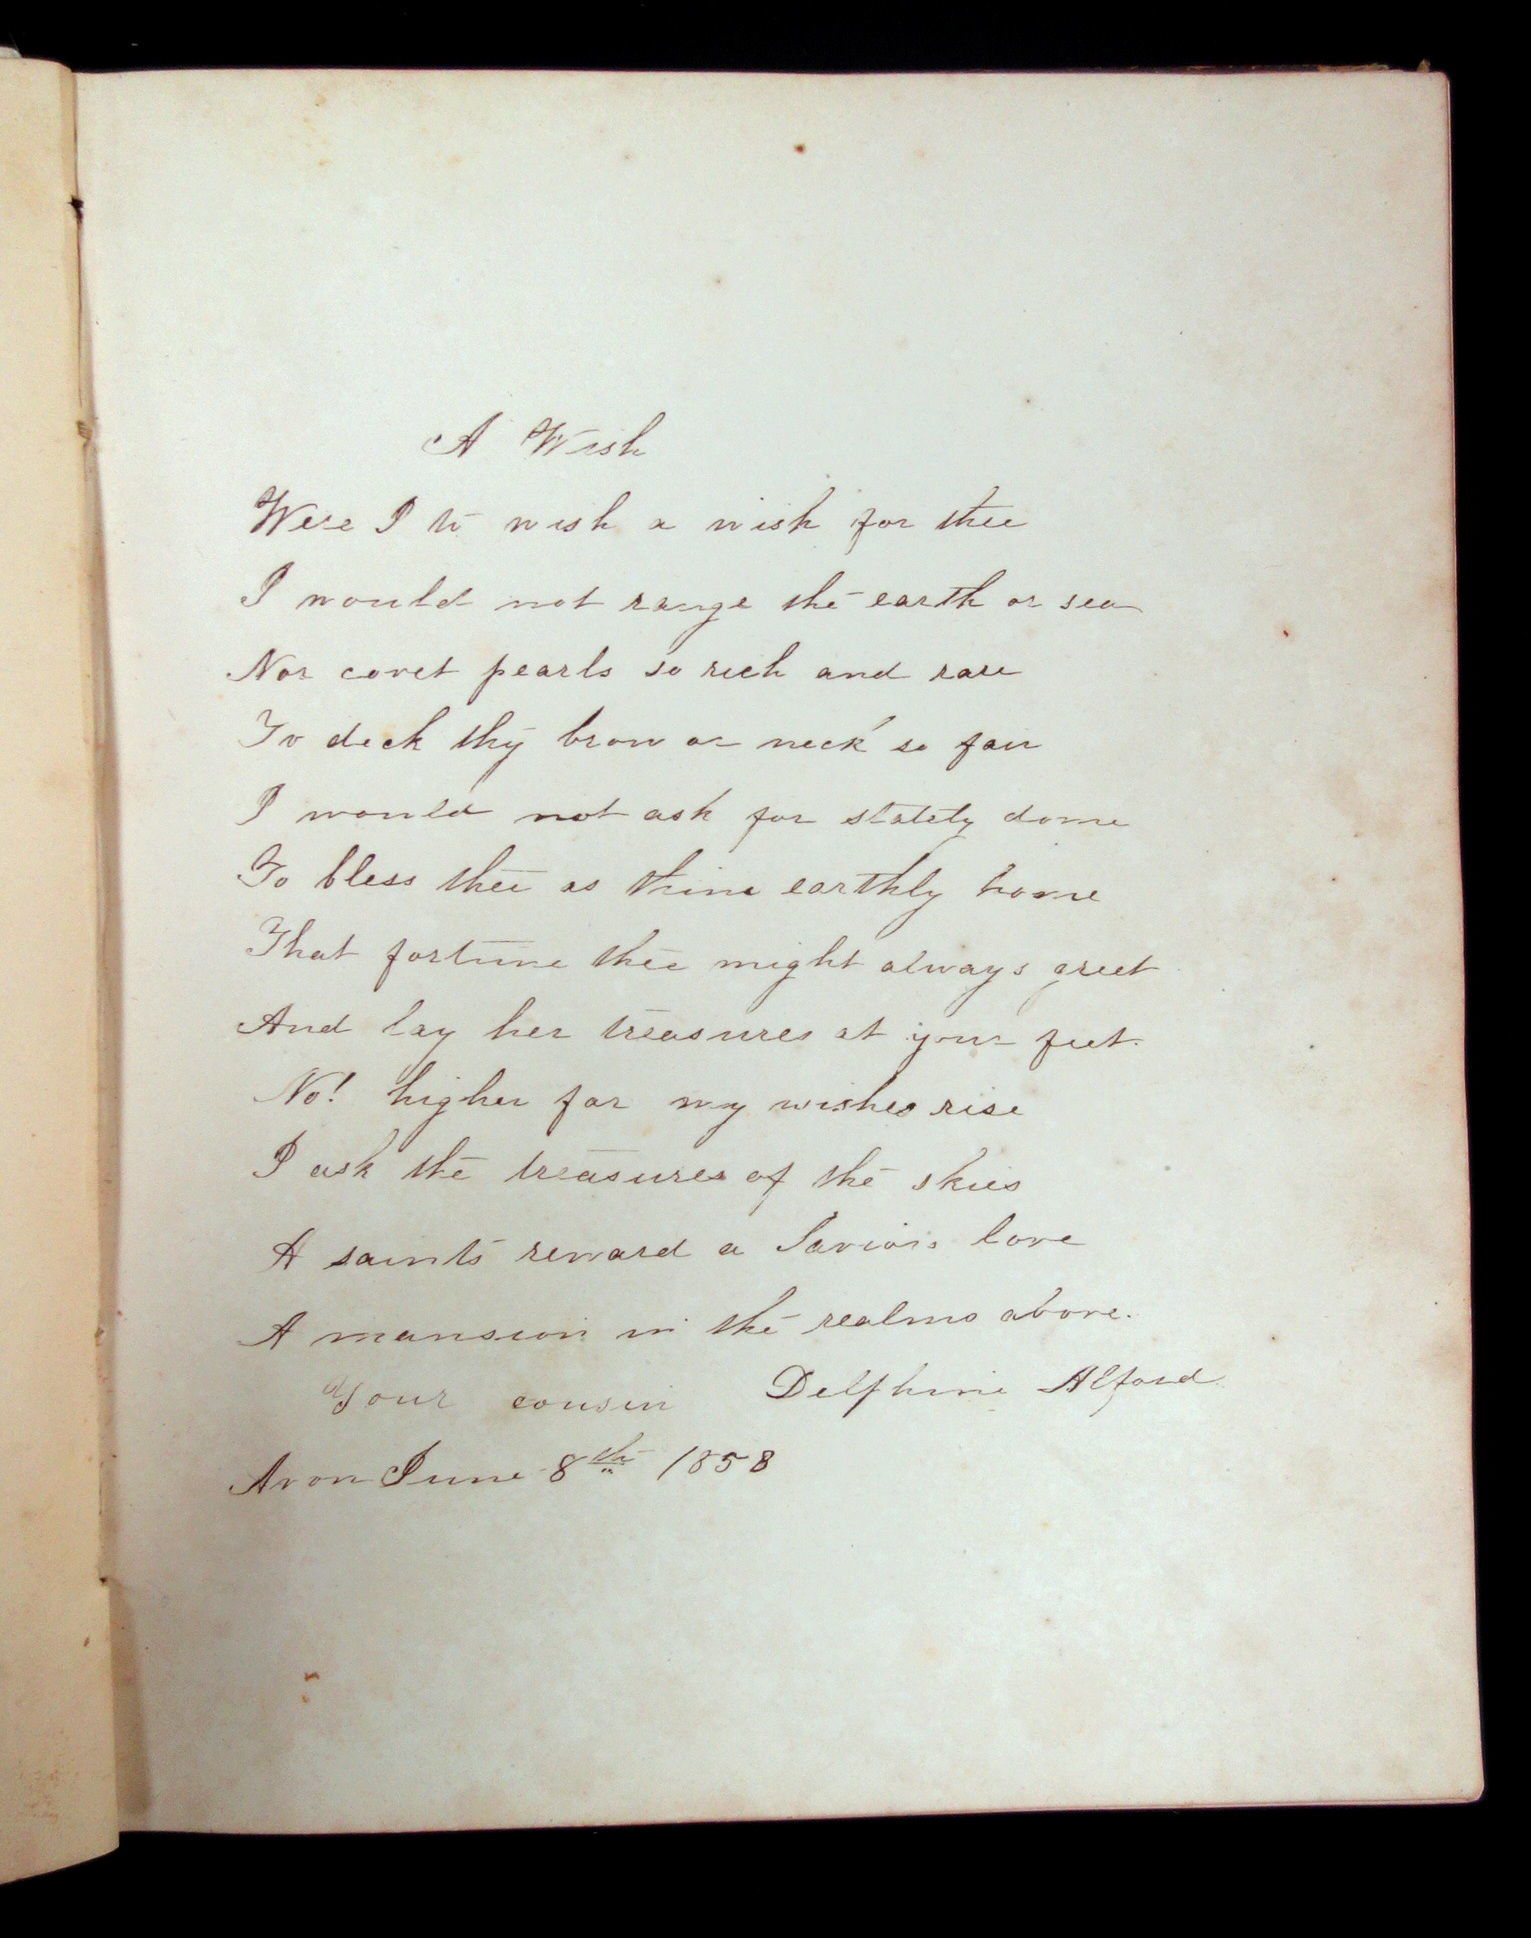 A Wish
Were I to wish a wish for thee
I would not range the earth or sea
Nor covet pearls so rich and rare
To deck thy brow or neck so fair
I would not ask for stately dome
To bless thee as thine earthly home
That fortune thee might always greet
And lay her treasures at your feet.
No! higher far my wishes rise
I ask the treasures of the skies
A saints reward a Saviors love
A mansion in the realms above.
Your cousin Delphine Alford
Avon June 8th 1858